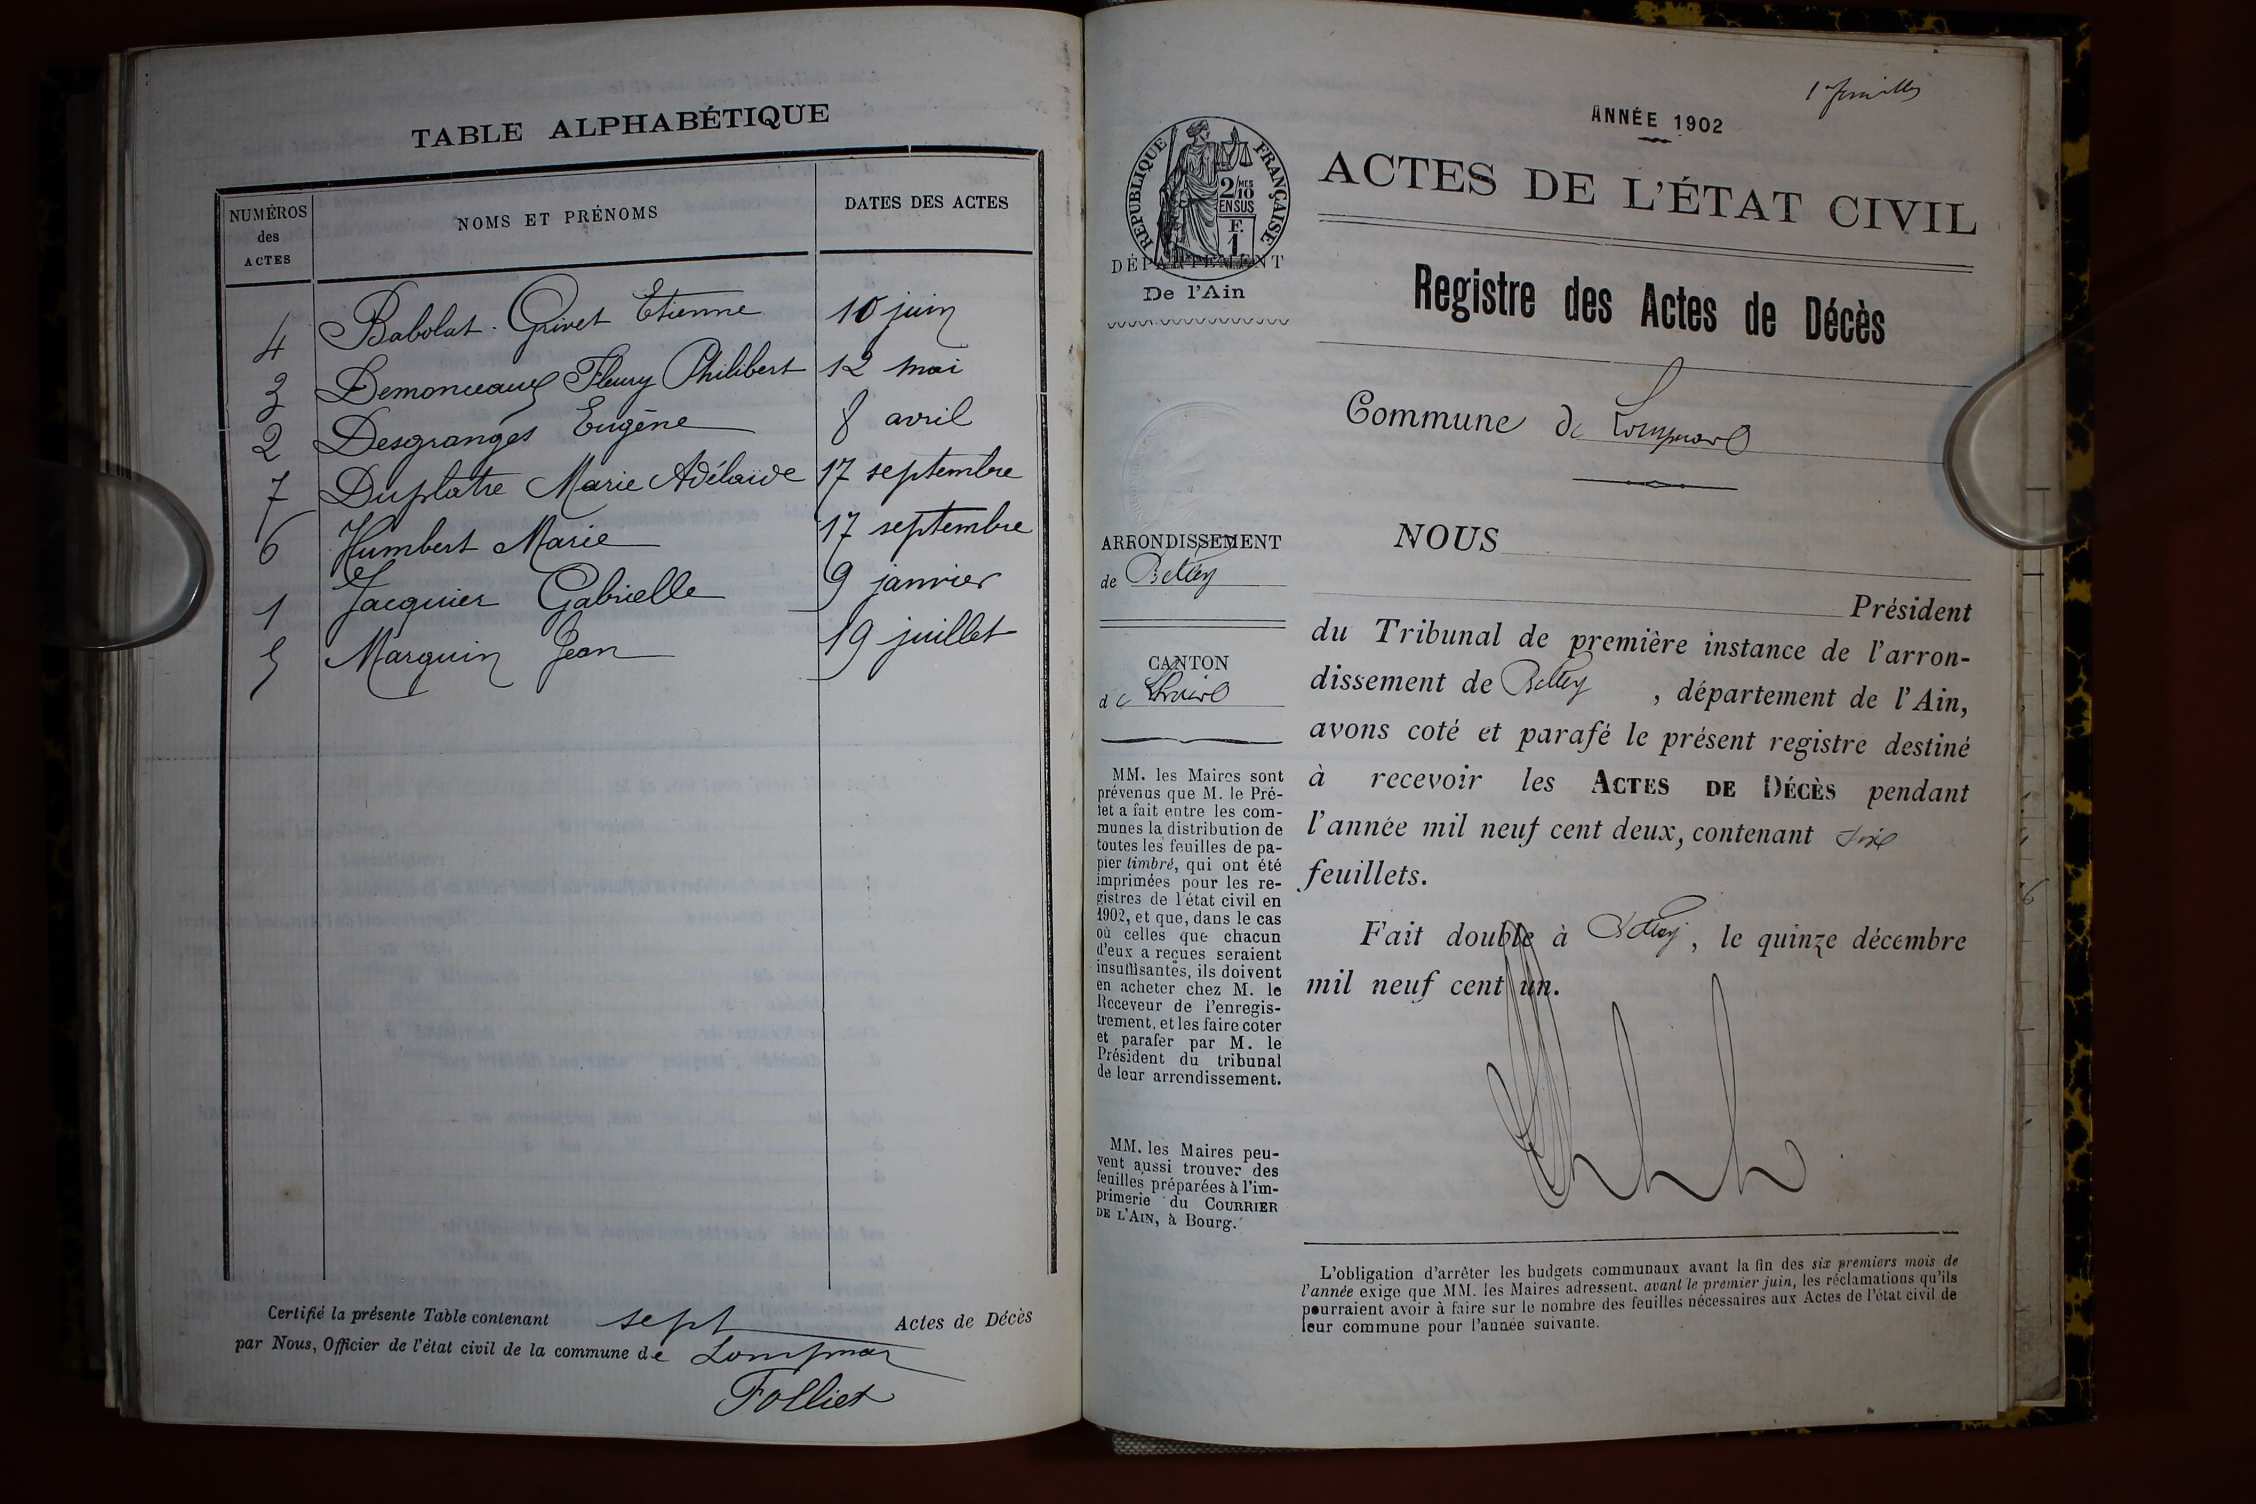 TABLE ALPHABÉTIQUE
NUMÉROS des ACTES
NOMS ET PRÉNOMS
DATES DES ACTES
4 Babolat-Grivet Etienne 10 juin
3 Demonceaux Fleury Philibert 12 mai
2 Desgranges Eugène 8 avril
7 Duplatre Marie Adélaïde 17 septembre
6 Humbert Marie 17 septembre
1 Jacquier Gabrielle 9 janvier
5 Marquin Jean 19 juillet
Certifié la présente Table contenant sept Actes de Décès
par Nous, Officier de l'état civil de la commune de Lompnaz
Folliet
ANNÉE 1902
ACTES DE L'ÉTAT CIVIL
RÉPUBLIQUE FRANÇAISE
2/10 MES
EN SUS
F.
1
DÉPARTEMENT
De l'Ain
Registre des Actes de Décès
Commune de
ARRONDISSEMENT
de Belley
CANTON
de
MM. les Maires sont
prévenus que M. le Pré-
fet a fait entre les com-
munes la distribution de
toutes les feuilles de pa-
pier timbré, qui ont été
imprimées pour les re-
gistres de l'état civil en
1902, et que, dans le cas
où celles que chacun
d'eux a reçues seraient
insuffisantes, ils doivent
en acheter chez M. le
Receveur de l'enregis-
trement, et les faire coter
et parafer par M. le
Président du tribunal
de leur arrondissement.
MM. les Maires peu-
vent aussi trouver des
feuilles préparées à l'im-
primerie du COURRIER
DE L'AIN, à Bourg.
NOUS
Président
du Tribunal de première instance de l'arron-
dissement de Belley, département de l'Ain,
avons coté et parafé le présent registre destiné
à recevoir les ACTES DE DÉCÈS pendant
l'année mil neuf cent deux, contenant six
feuillets.
Fait double à Belley, le quinze décembre
mil neuf cent un.
L'obligation d'arrêter les budgets communaux avant la fin des six premiers mois de
l'année exige que MM. les Maires adressent, avant le premier juin, les réclamations qu'ils
pourraient avoir à faire sur le nombre des feuilles nécessaires aux Actes de l'état civil de
leur commune pour l'année suivante.